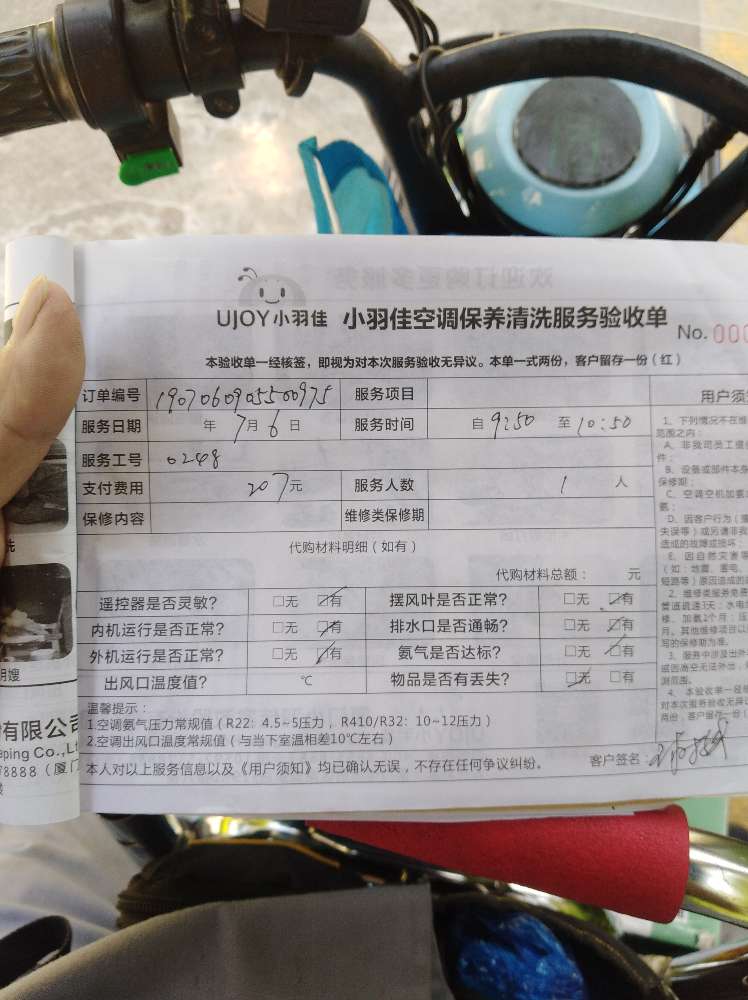 UJOY小羽佳 小羽佳空调保养清洗服务验收单 No. 000
本验收单一经核签，即视为对本次服务验收无异议。本单一式两份，客户留存一份（红）
订单编号 1907060905500975 服务项目
服务日期 年7月6日 服务时间 自9:50至10:50
服务工号 0248
支付费用 207元 服务人数 1人
保修内容 维修类保修期
代购材料明细（如有）
代购材料总额： 元
遥控器是否灵敏? □无 ☑有 摆风叶是否正常? □无 ☑有
内机运行是否正常? □无 ☑有 排水口是否通畅? □无 ☑有
外机运行是否正常? □无 ☑有 氨气是否达标? □无 ☑有
出风口温度值? ℃ 物品是否有丢失? ☑无 □有
温馨提示：
1.空调氨气压力常规值（R22: 4.5~5压力，R410/R32: 10~12压力）
2.空调出风口温度常规值（与当下室温相差10℃左右）
本人对以上服务信息以及《用户须知》均已确认无误，不存在任何争议纠纷。 客户签名：
用户须
1、下列情况不在维
范围之内：
A、非我司员工提
件；
B、设备或部件本身
保修期；
C、空调空机加氨
氨；
D、因客户行为（
失误等）或另请非我
造成的故障或损坏；
E、因自然灾害等
（如：地震、雷电、
短路等）原因造成的
2、维修类服务免费
管道疏通3天；水电
修、加氨1个月；压
月。其他维修项目以
写的保修期为准。
3、服务中涉及出外
或因高空无法外出，
测范围。
4、本验收单一经
对本次服务验收无异
两份，客户留存一份（
洗
明嫂
有限公司
ping Co.,Lt
8888（厦门